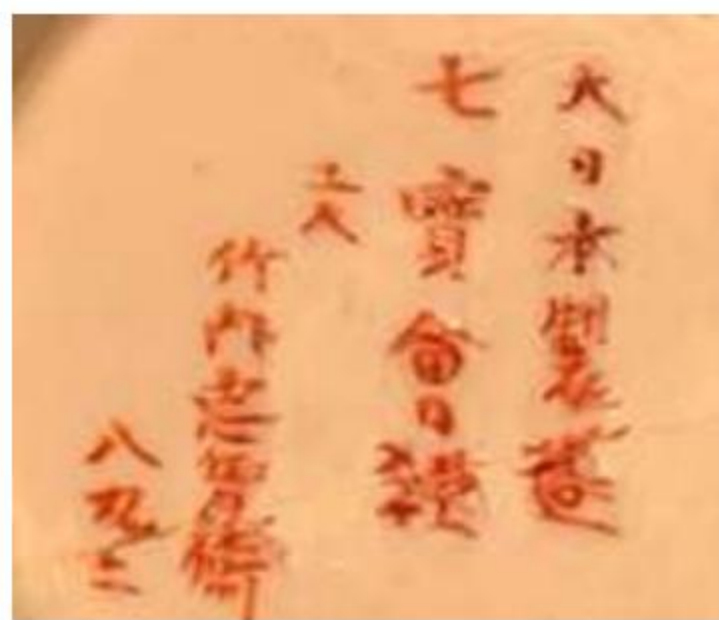 大日本製造
七寶會
工人
竹内忠兵衛
八九二